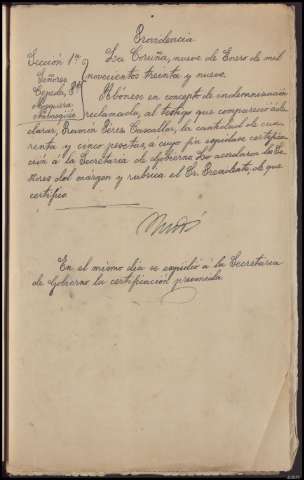 Providencia
Sección 1ª
Señores
Cepeda, Pte
La Coruña, nueve de Enero de mil
novecientos treinta y nueve.
Abónese en concepto de indemnización
reclamada, al testigo que compareció á de
clarar, Ramón Pérez Cascallar, la cantidad de cua
renta y cinco pesetas, a cuyo fin expídase certifica
ción á la Secretaría de Gobierno. Lo acordaron los Se
ñores del margen y rubrica el Sr. Presidente, de que
certifico.
En el mismo día se expidió á la Secretaría
de Gobierno la certificación prevenida.